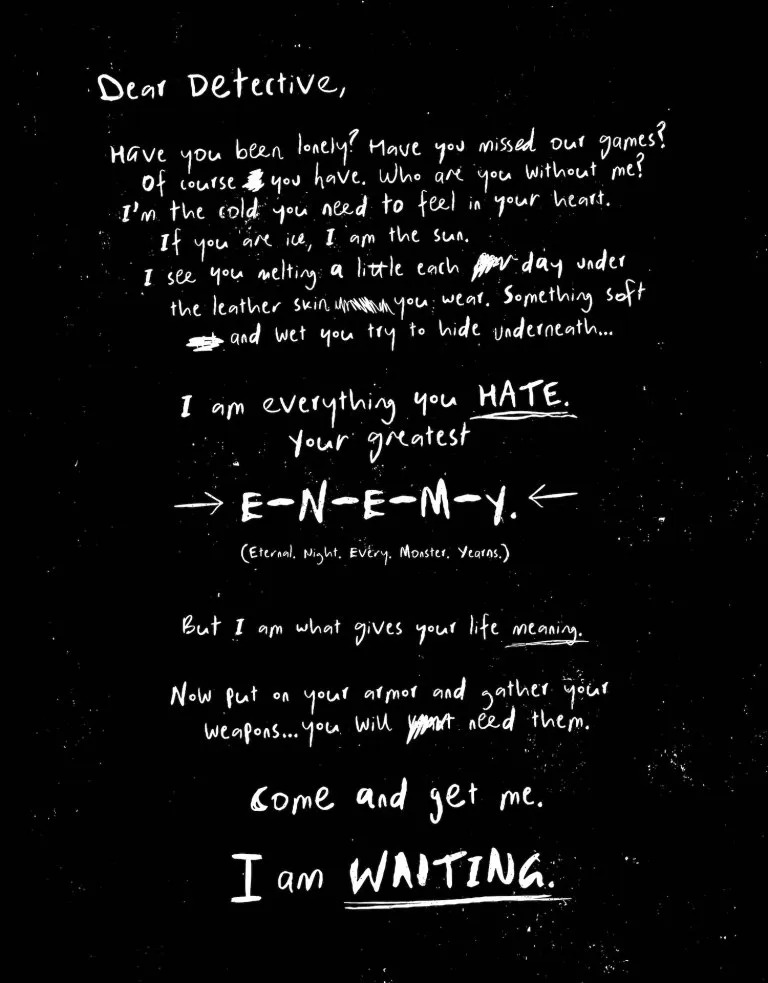 Dear Detective,
Have you been lonely? Have you missed our games?
Of course you have. Who are you without me?
I'm the cold you need to feel in your heart.
If you are ice, I am the sun.
I see you melting a little each day under
the leather skin you wear. Something soft
and wet you try to hide underneath...
I am everything you HATE.
Your greatest
→ E-N-E-M-Y. ←
(Eternal. Night. Every. Monster. Yearns.)
But I am what gives your life meaning.
Now put on your armor and gather your
weapons...you will need them.
Come and get me.
I am WAITING.